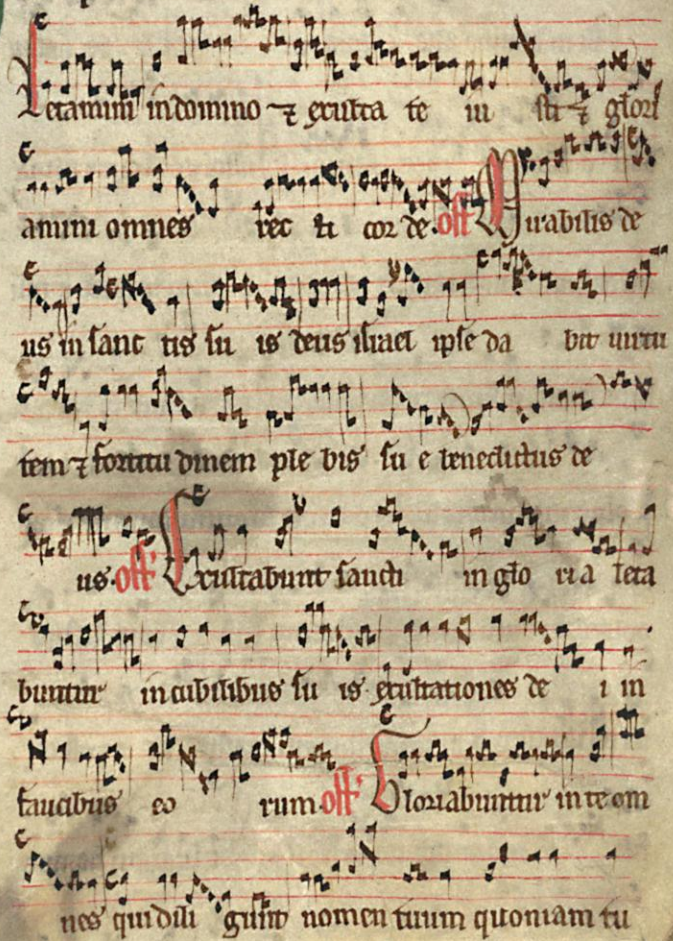 Letamini in domino ⁊ exulta te iu sti ⁊ glori
amini omnes rec ti cor de. off Mirabilis de
us in sanc tis su is deus israel ipse da bit uirtu
tem ⁊ fortitu dinem ple bis su e benedictus de
us. off Exultabunt sancti in glo ri a leta
buntur in cubilibus su is exultationes de i in
faucibus eo rum off Gloriabuntur in te om
nes qui dili gunt nomen tuum quoniam tu